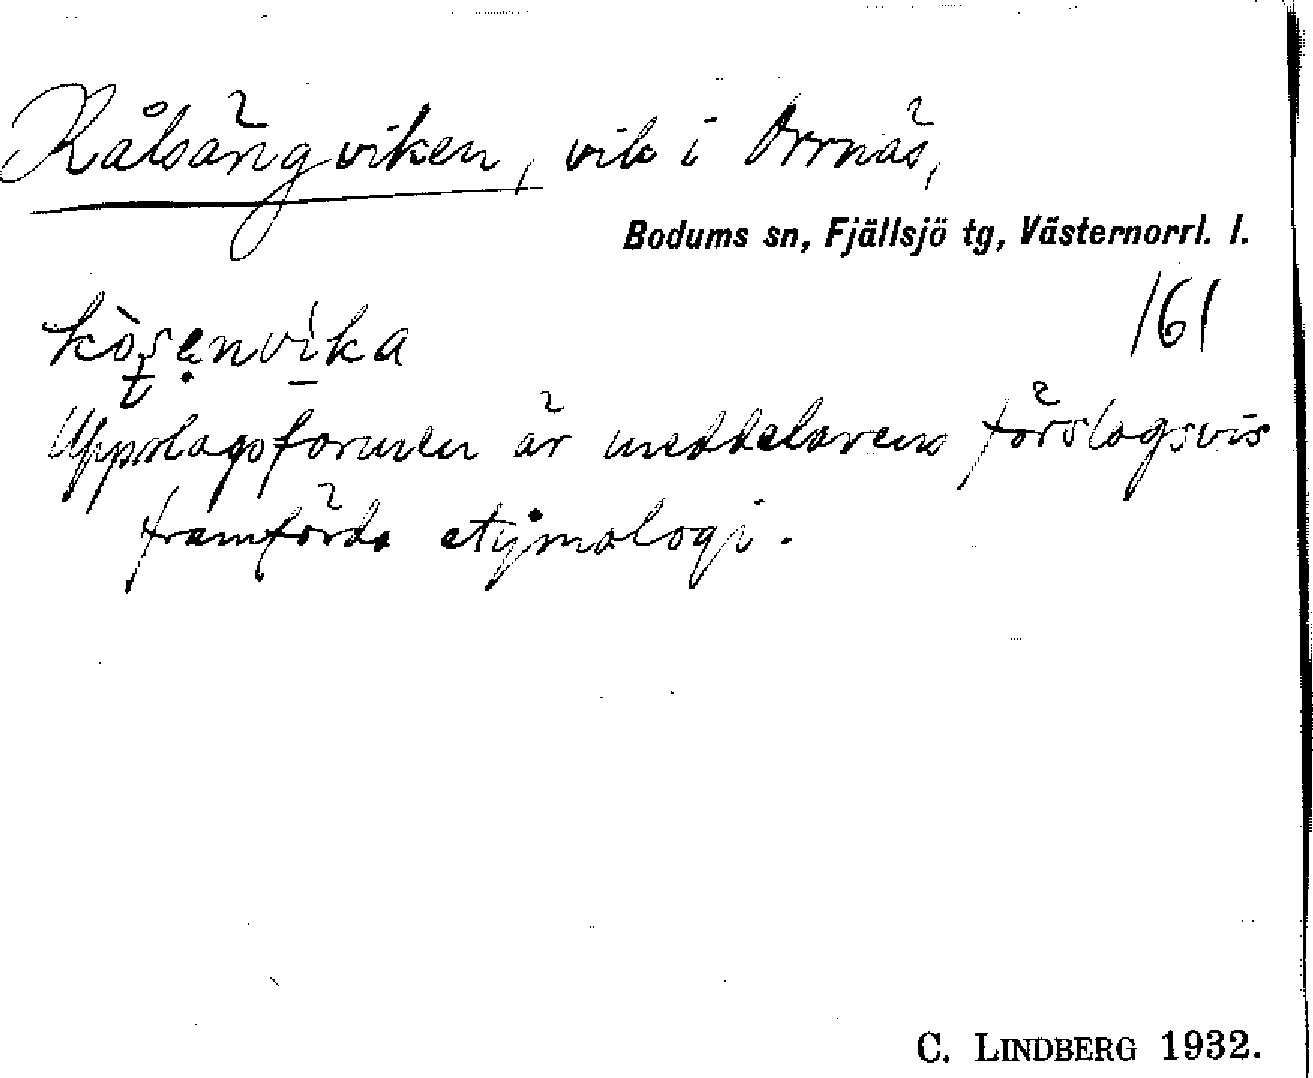 Kålsängviken, vik i Orrnäs,
Bodums sn, Fjällsjö tg, Västernorrl. l.
161
Uppslagsformen är meddelarens förslagsvis
framförda etymologi.
C. LINDBERG 1932.